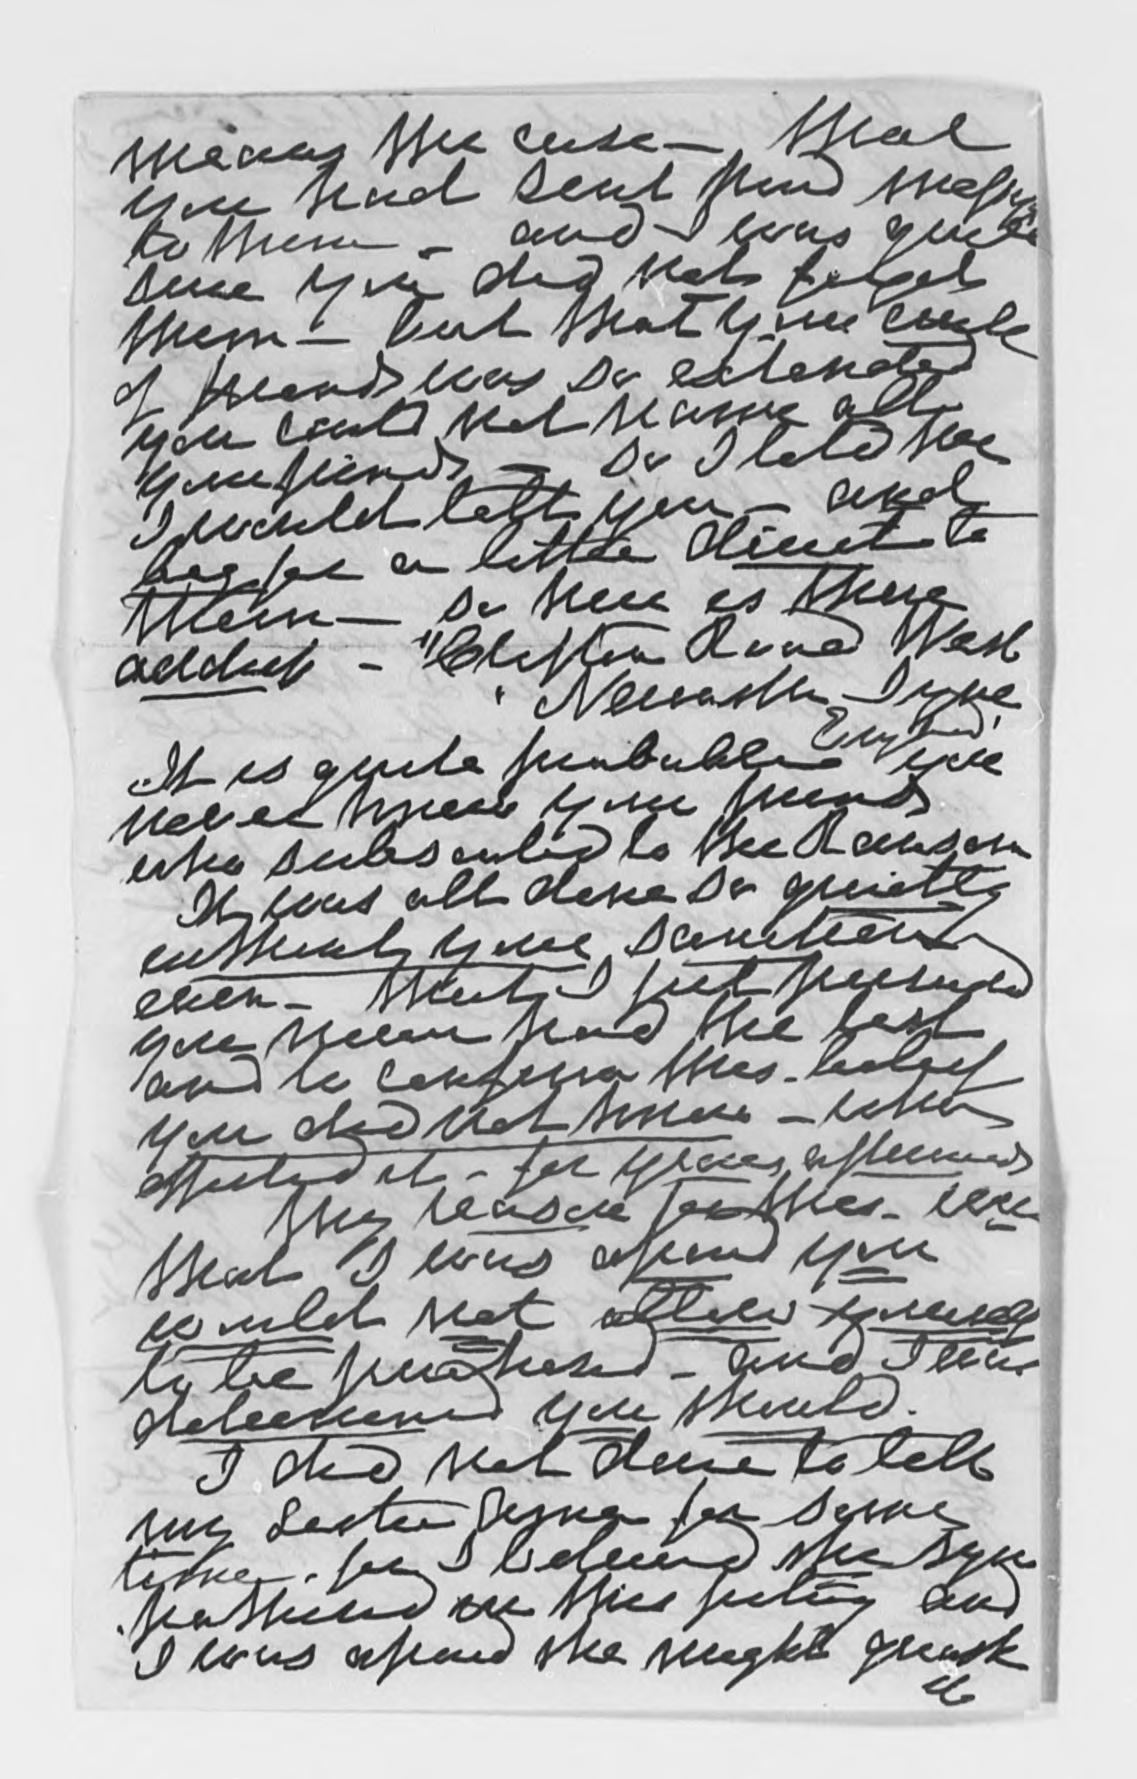 means the case — that
you had sent kind messages
to them — and I was quite
sure you did not forget
them — but that your circle
of friends was so extended
you could not name all
your friends — So I told her
I would tell you — and
beg for a little direct to
them — so here is there
address — "Clifton Road West
" Newcastle Tyne
England,
It is quite probable you
never knew your friends
who subscribed to the Ransom
It was all done so quietly
without your sanction
even — that I felt persuaded
you never had the list
and to confirm this belief
you did not know — who
effected it — for years afterwards
My reason for this — was
that I was afraid you
would not allow yourself
to be purchased — and I was
determined you should.
I did not dare to tell
my Sister Anna for some
time. for I believed she sym
pathized in this feeling and
I was afraid she might quash
it